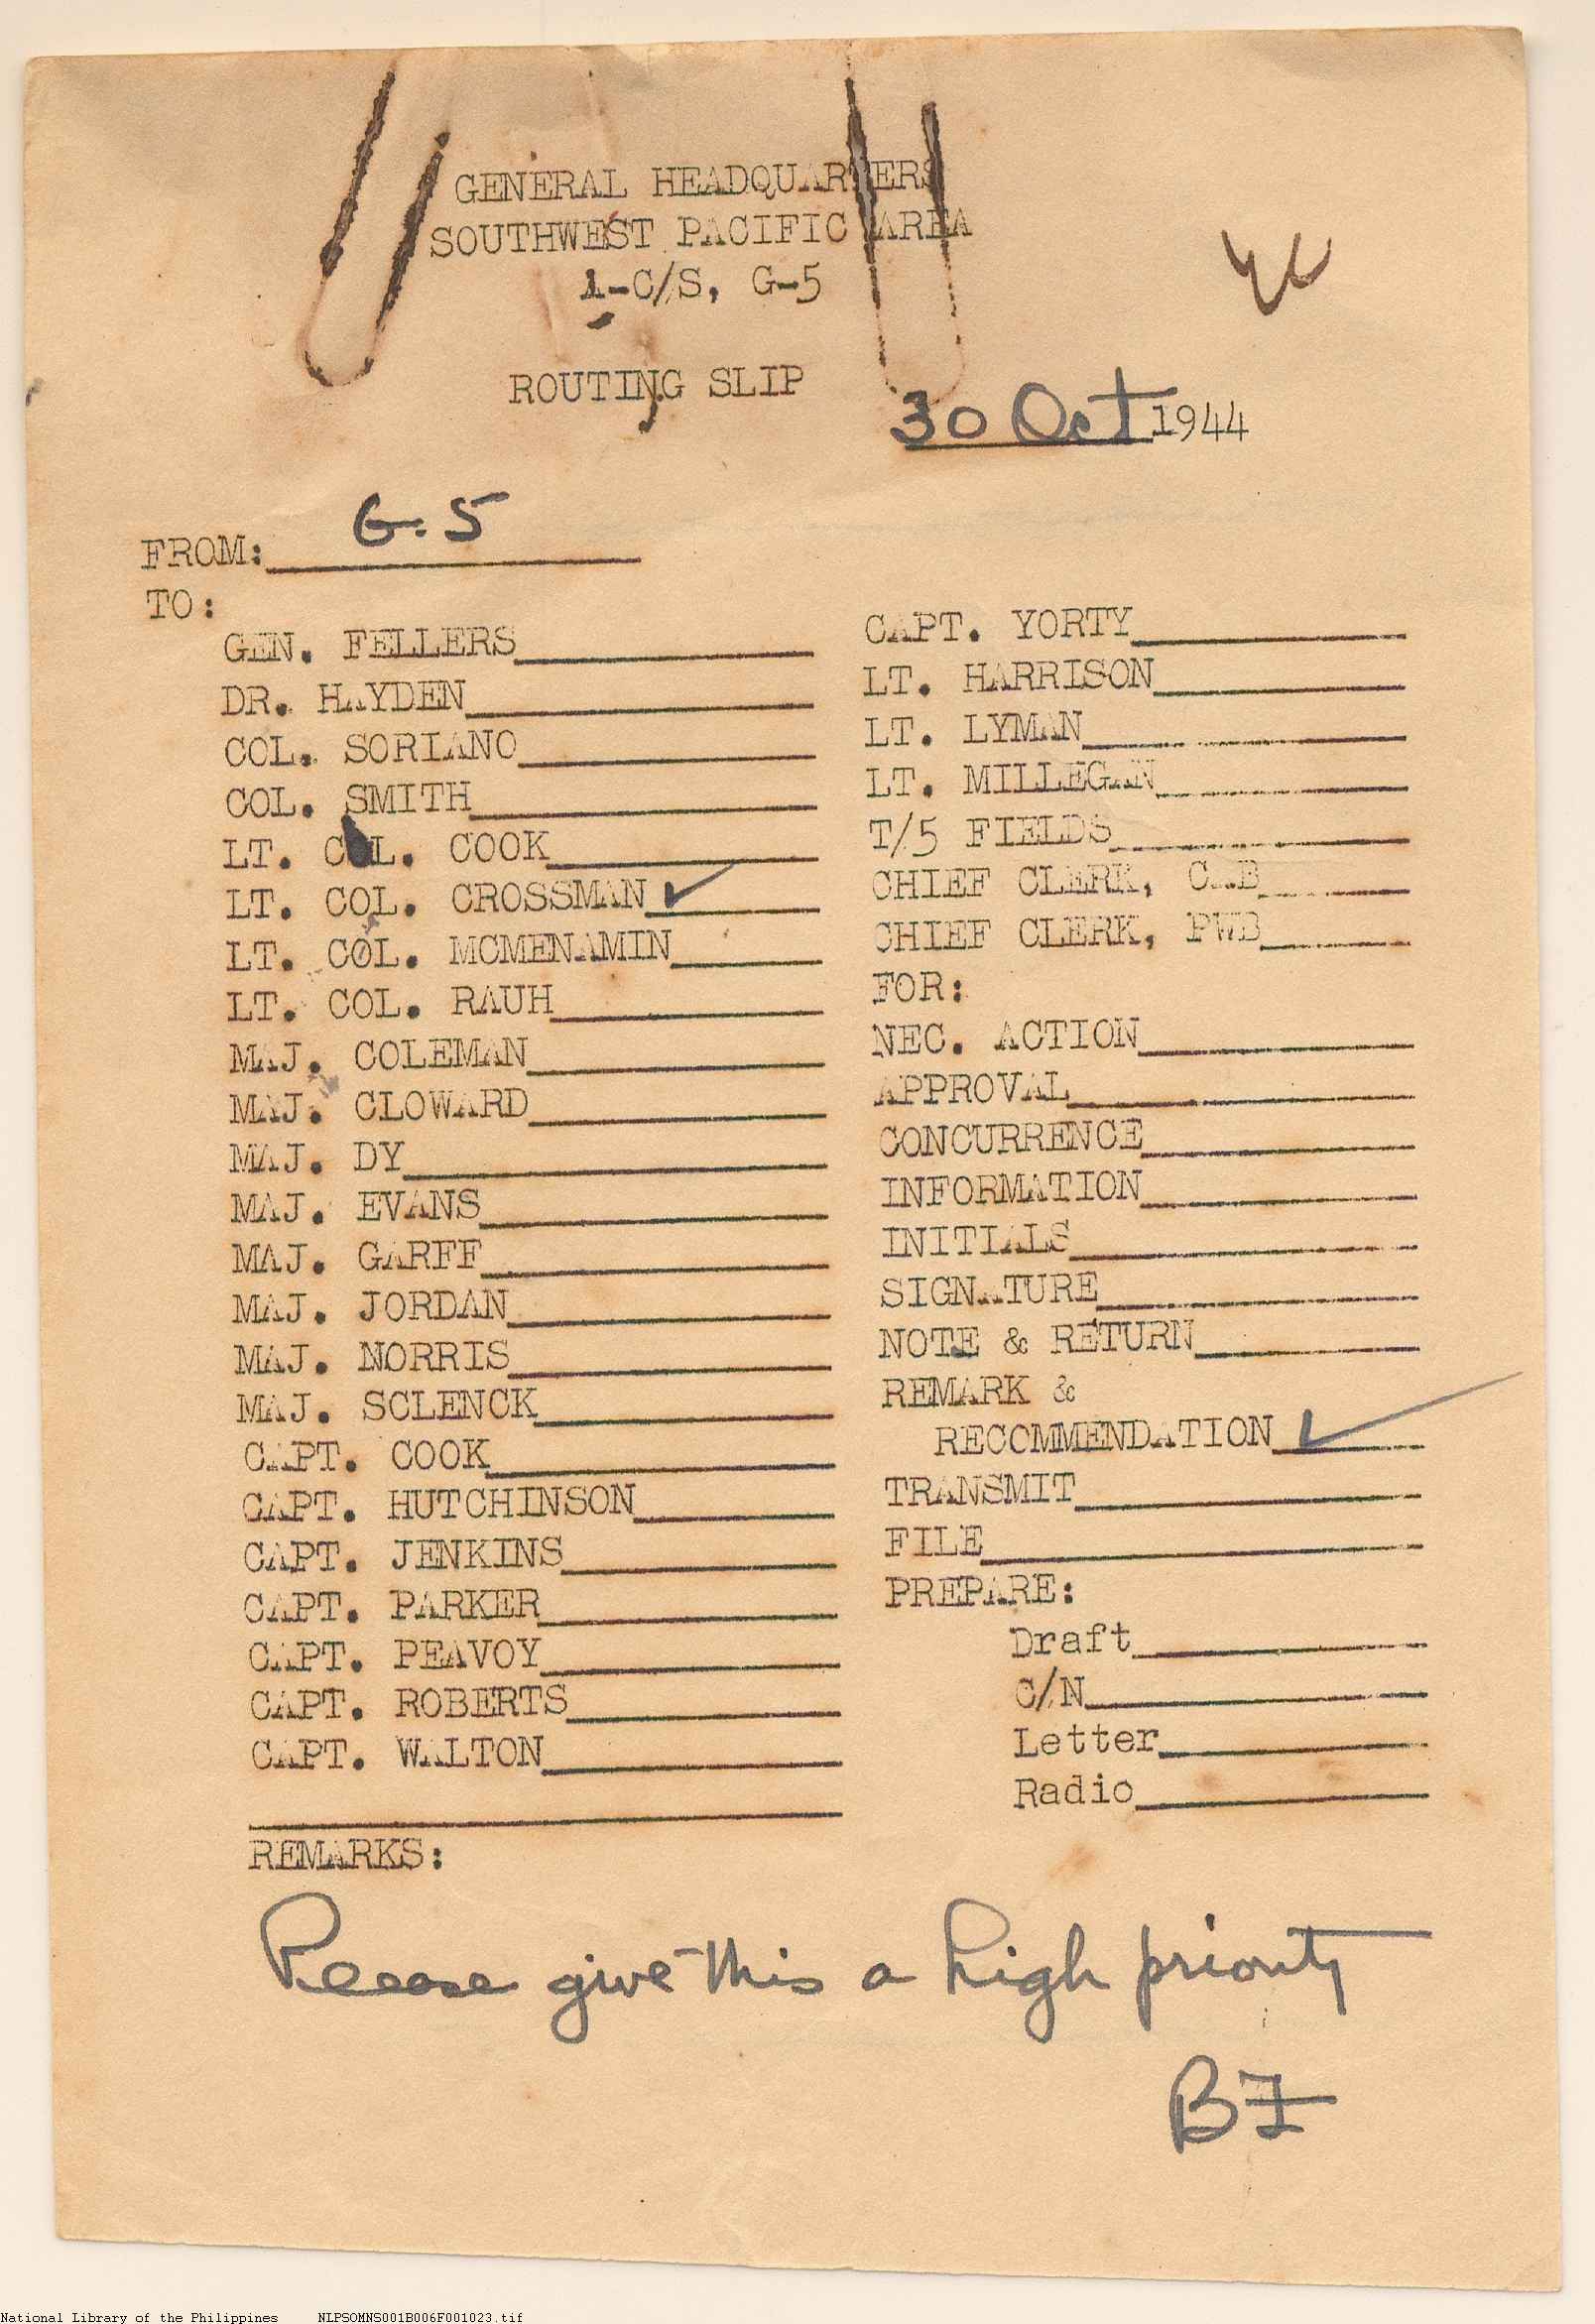 GENERAL HEADQUARTERS
SOUTHWEST PACIFIC AREA
-C/S, G-5
ROUTING SLIP
30 Oct 1944
FROM: G-5
TO:
GEN. FELLERS
DR. HAYDEN
COL. SORIANO
COL. SMITH
LT. COL. COOK
LT. COL. CROSSMAN ✓
LT. COL. MCMENAMIN
LT. COL. RAUH
MAJ. COLEMAN
MAJ. CLOWARD
MAJ. DY
MAJ. EVANS
MAJ. GARFF
MAJ. JORDAN
MAJ. NORRIS
MAJ. SCLENCK
CAPT. COOK
CAPT. HUTCHINSON
CAPT. JENKINS
CAPT. PARKER
CAPT. PEAVOY
CAPT. ROBERTS
CAPT. WALTON
CAPT. YORTY
LT. HARRISON
LT. LYMAN
LT. MILLEGAN
T/5 FIELDS
CHIEF CLERK, CAB
CHIEF CLERK, PWB
FOR:
NEC. ACTION
APPROVAL
CONCURRENCE
INFORMATION
INITIALS
SIGNATURE
NOTE & RETURN
REMARK &
RECOMMENDATION ✓
TRANSMIT
FILE
PREPARE:
Draft
C/N
Letter
Radio
REMARKS:
Please give this a high priority
BF
National Library of the Philippines NLPSOMNS001B006F001023.tif